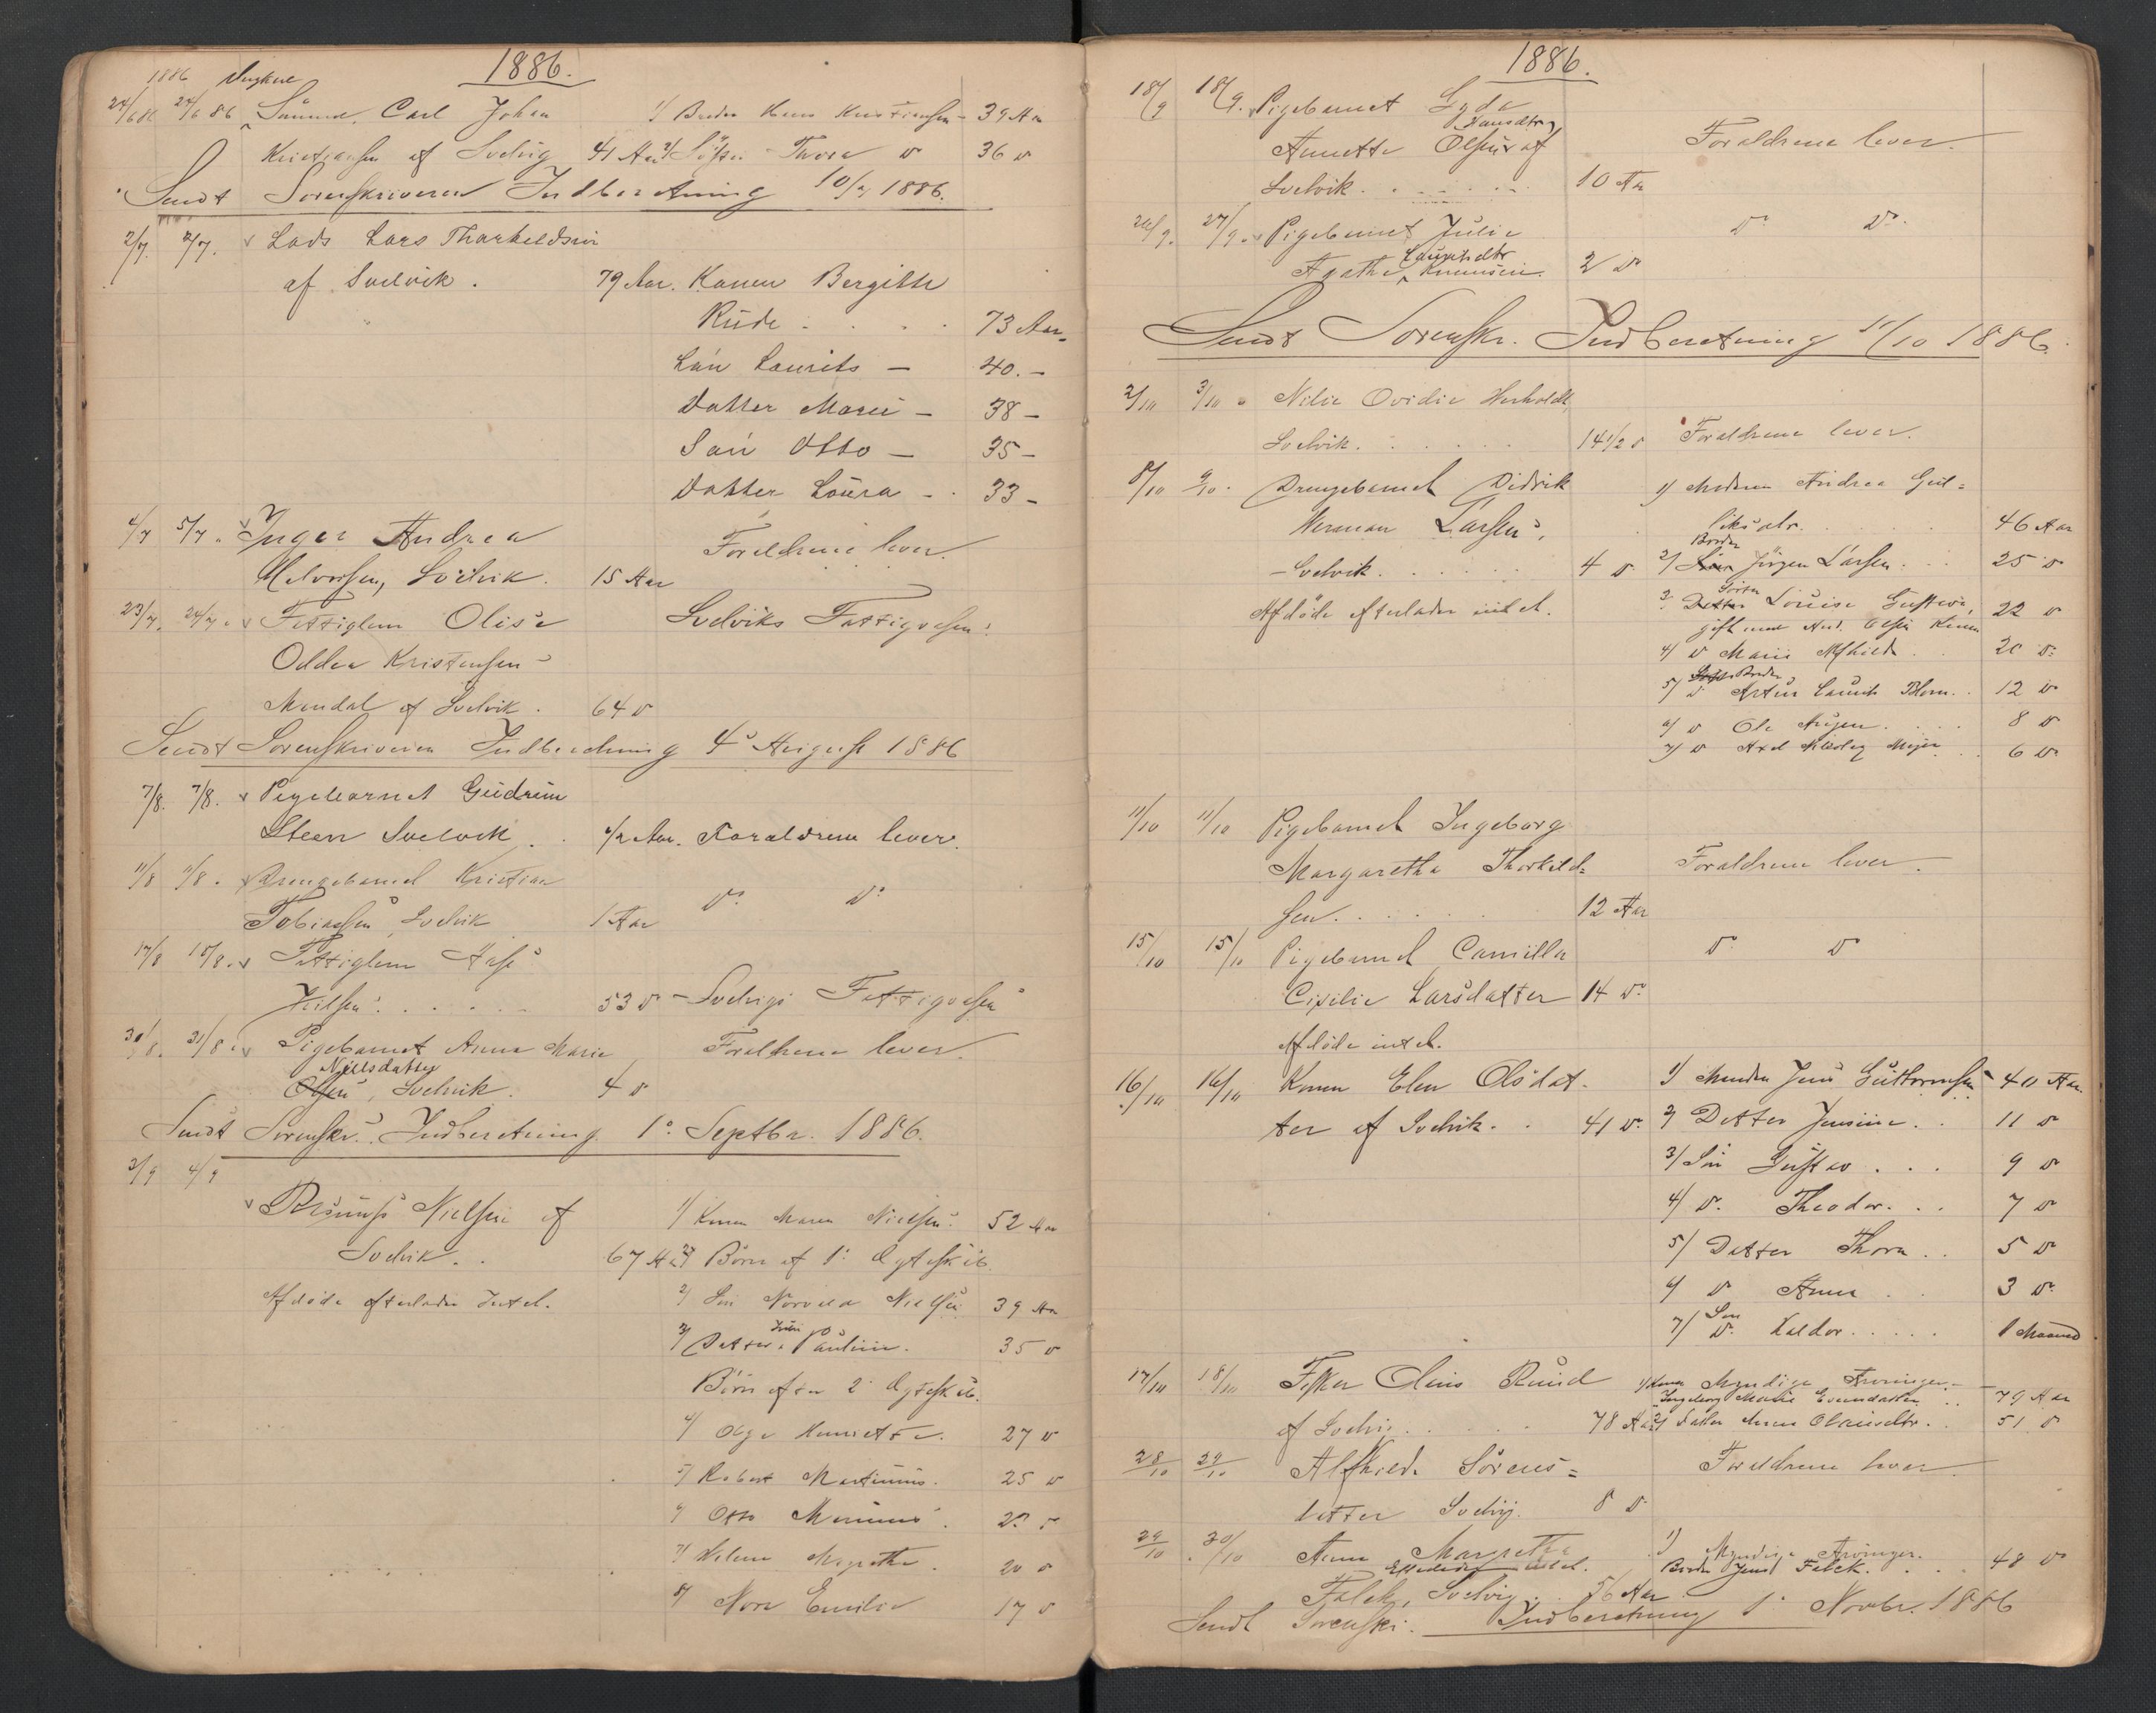 1886.
1886 Ungkarl
24/6 86 24/6 86 Sömand Carl Johan 1/ Broder Hans Kristiansen - 39 Aar
Kristiansen af Svelvig 41 Aar 2/ Söster Thora do 36 do
Sendt Sorenskriveren Indberetning 10/7 1886.
2/7. 2/7. Lods Lars Tharkeldsen
af Svelvik. 79 Aar. Konen Bergitte
Rüde . . . . 73 Aar
Sön Laurits - 40.-
Datter Marie - 38 -
Sön Otto - 35 -
Datter Laura - . 33 -
4/7 5/7. Inger Andrea Forældrene lever.
Halvorsen, Svelvik. 15 Aar
23/7. 24/7. Fattiglem Olise Svelviks Fattigvesen.
Oddea Kristensen
Mendal af Svelvik. 64 do
Sendt Sorenskriveren Indberetning 4de August 1886
7/8. 7/8. Pigebarnet Gudrun
Steen Svelvik . . 1/2 Aar. Forældrene lever.
11/8 11/8. Drengebarnet Kristian do. do.
Tobiassen, Svelvik 1 Aar
17/8 18/8. Fattiglem
Nilsen . . . . . 53 do - Svelvigs Fattigvesen
30/8. 31/8. Pigebarnet Anna Marie Forældrene lever.
Nielsdatter
Olsen, Svelvik. 4 do
Sendt Sorenskr. Indberetning 1ste Septbr. 1886.
3/9 4/9
Rasmus Nielsen af 1/ Konen Maren Nielsen. 52 Aar
Svelvik. . 67 Aar Börn af 1ste Ægteskab.
Afdöde efterlader Intet. 2/ Sön Nielsen 39 Aar
3/ Datter Pauline. 35 do
Börn efter 2det Ægteskab.
4/ Olga Henriette. 27 do
5/ Robert Martinius. 25 do
6/ Otto Marinius. 23 do
7/ Helene Magrethe . 20 do
8/ Nora Emilie 17 do
1886.
18/9 18/9. Pigebarnet Lyda
Hansdtr
Annette Olsen af Forældrene lever.
Svelvik. . . . . . . 10 Aar
26/9. 27/9. Pigebarnet Julie do. do.
Lauritsdtr
Agathe Knudsen. 2 do
Sendt Sorenskr. Indberetning 11/10 1886.
2/10 3/10 Nilia Ovidie Herholdt,
Svelvik. . . . . . 14 1/2 do Forældrene lever.
8/10 9/10. Drengebarnet Didrik 1/ Moderen Andrea Gul=
Herman Larsen, liksdtr. . . . . . 46 Aar
Broder
- Svelvik. . . . . . 4 do 2/ Sön Jörgen Larsen. . . 25 do
Söster
Afdöde efterlader intet. 3. Datter Louise Gustava, 22 do
gift med And. Olsen
4/ do Marie Alfhilde . . 20 do.
Broder
5/ do Artur Laurits Thom. . 12 do
6/ do Ole . . . . 8 do
7/ do Axel . . 6 do
11/10 11/10 Pigebarnet Ingeborg
Margaretha Thorkild= Forældrene lever.
sen. . . . . . 12 Aar
15/10 15/10 Pigebarnet Camilla do do
Cisilie Larsdatter 14 do.
Afdöde intet.
16/10 16/10 Konen Elen Olsdat- 1/ Manden Jens Guttormsen 40 Aar
ter af Svelvik. . 41 do. 2/ Datter Jensine . . 11 do
3/ Sön Gustav . . . 9 do
4/ do. Theodor. . . 7 do
5/ Datter Thora . . 5 do
6/ do Anna . . 3 do.
Sön
7/ do. Haldor . . . . . 1 Maaned
17/10 18/10 Fisker Olaus Ruud 1/ Konen Myndige Arvinger.-
Ingeborg Marie Evensdatter . . 79 Aar
af Svelvig. . . . . 78 Aar 2/ Datter Anna Olausdtr. . 51 do
28/10 29/10 Alfhilde Sörens= Forældrene lever.
datter Svelvig. 8 do.
29/10 30/10 Anna Margrethe 1) Myndige Arvinger.
Efterlader intet. Broder Jens Falck. . . . 48 do
Falck, Svelvig. . 56 Aar
Sendt Sorenskr. Indberetning 1ste Novbr. 1886